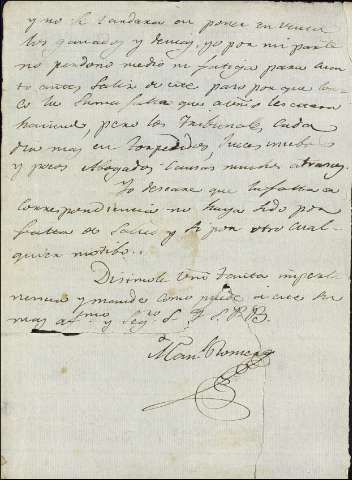 y no se tardara en poner en venta
los ganados y demas, yo por mi parte
no perdono medio ni fatiga para
antes salir de este paso por que
la suma falta que a
pero los Tribunales cada
dia mas en torpecidos, Jueces nuebos
y pocos Abogados causan muchos atrasos.
Yo deseare que la falta de
correspondiencia no haya sido por
falta de salud y si por otro cual-
quier motibo..
Disimule Vmd tanta imperti-
nencia y mande como puede á este su
mas af.mo y Seg.ro S. Q. S. M. B.
Man.l Romero